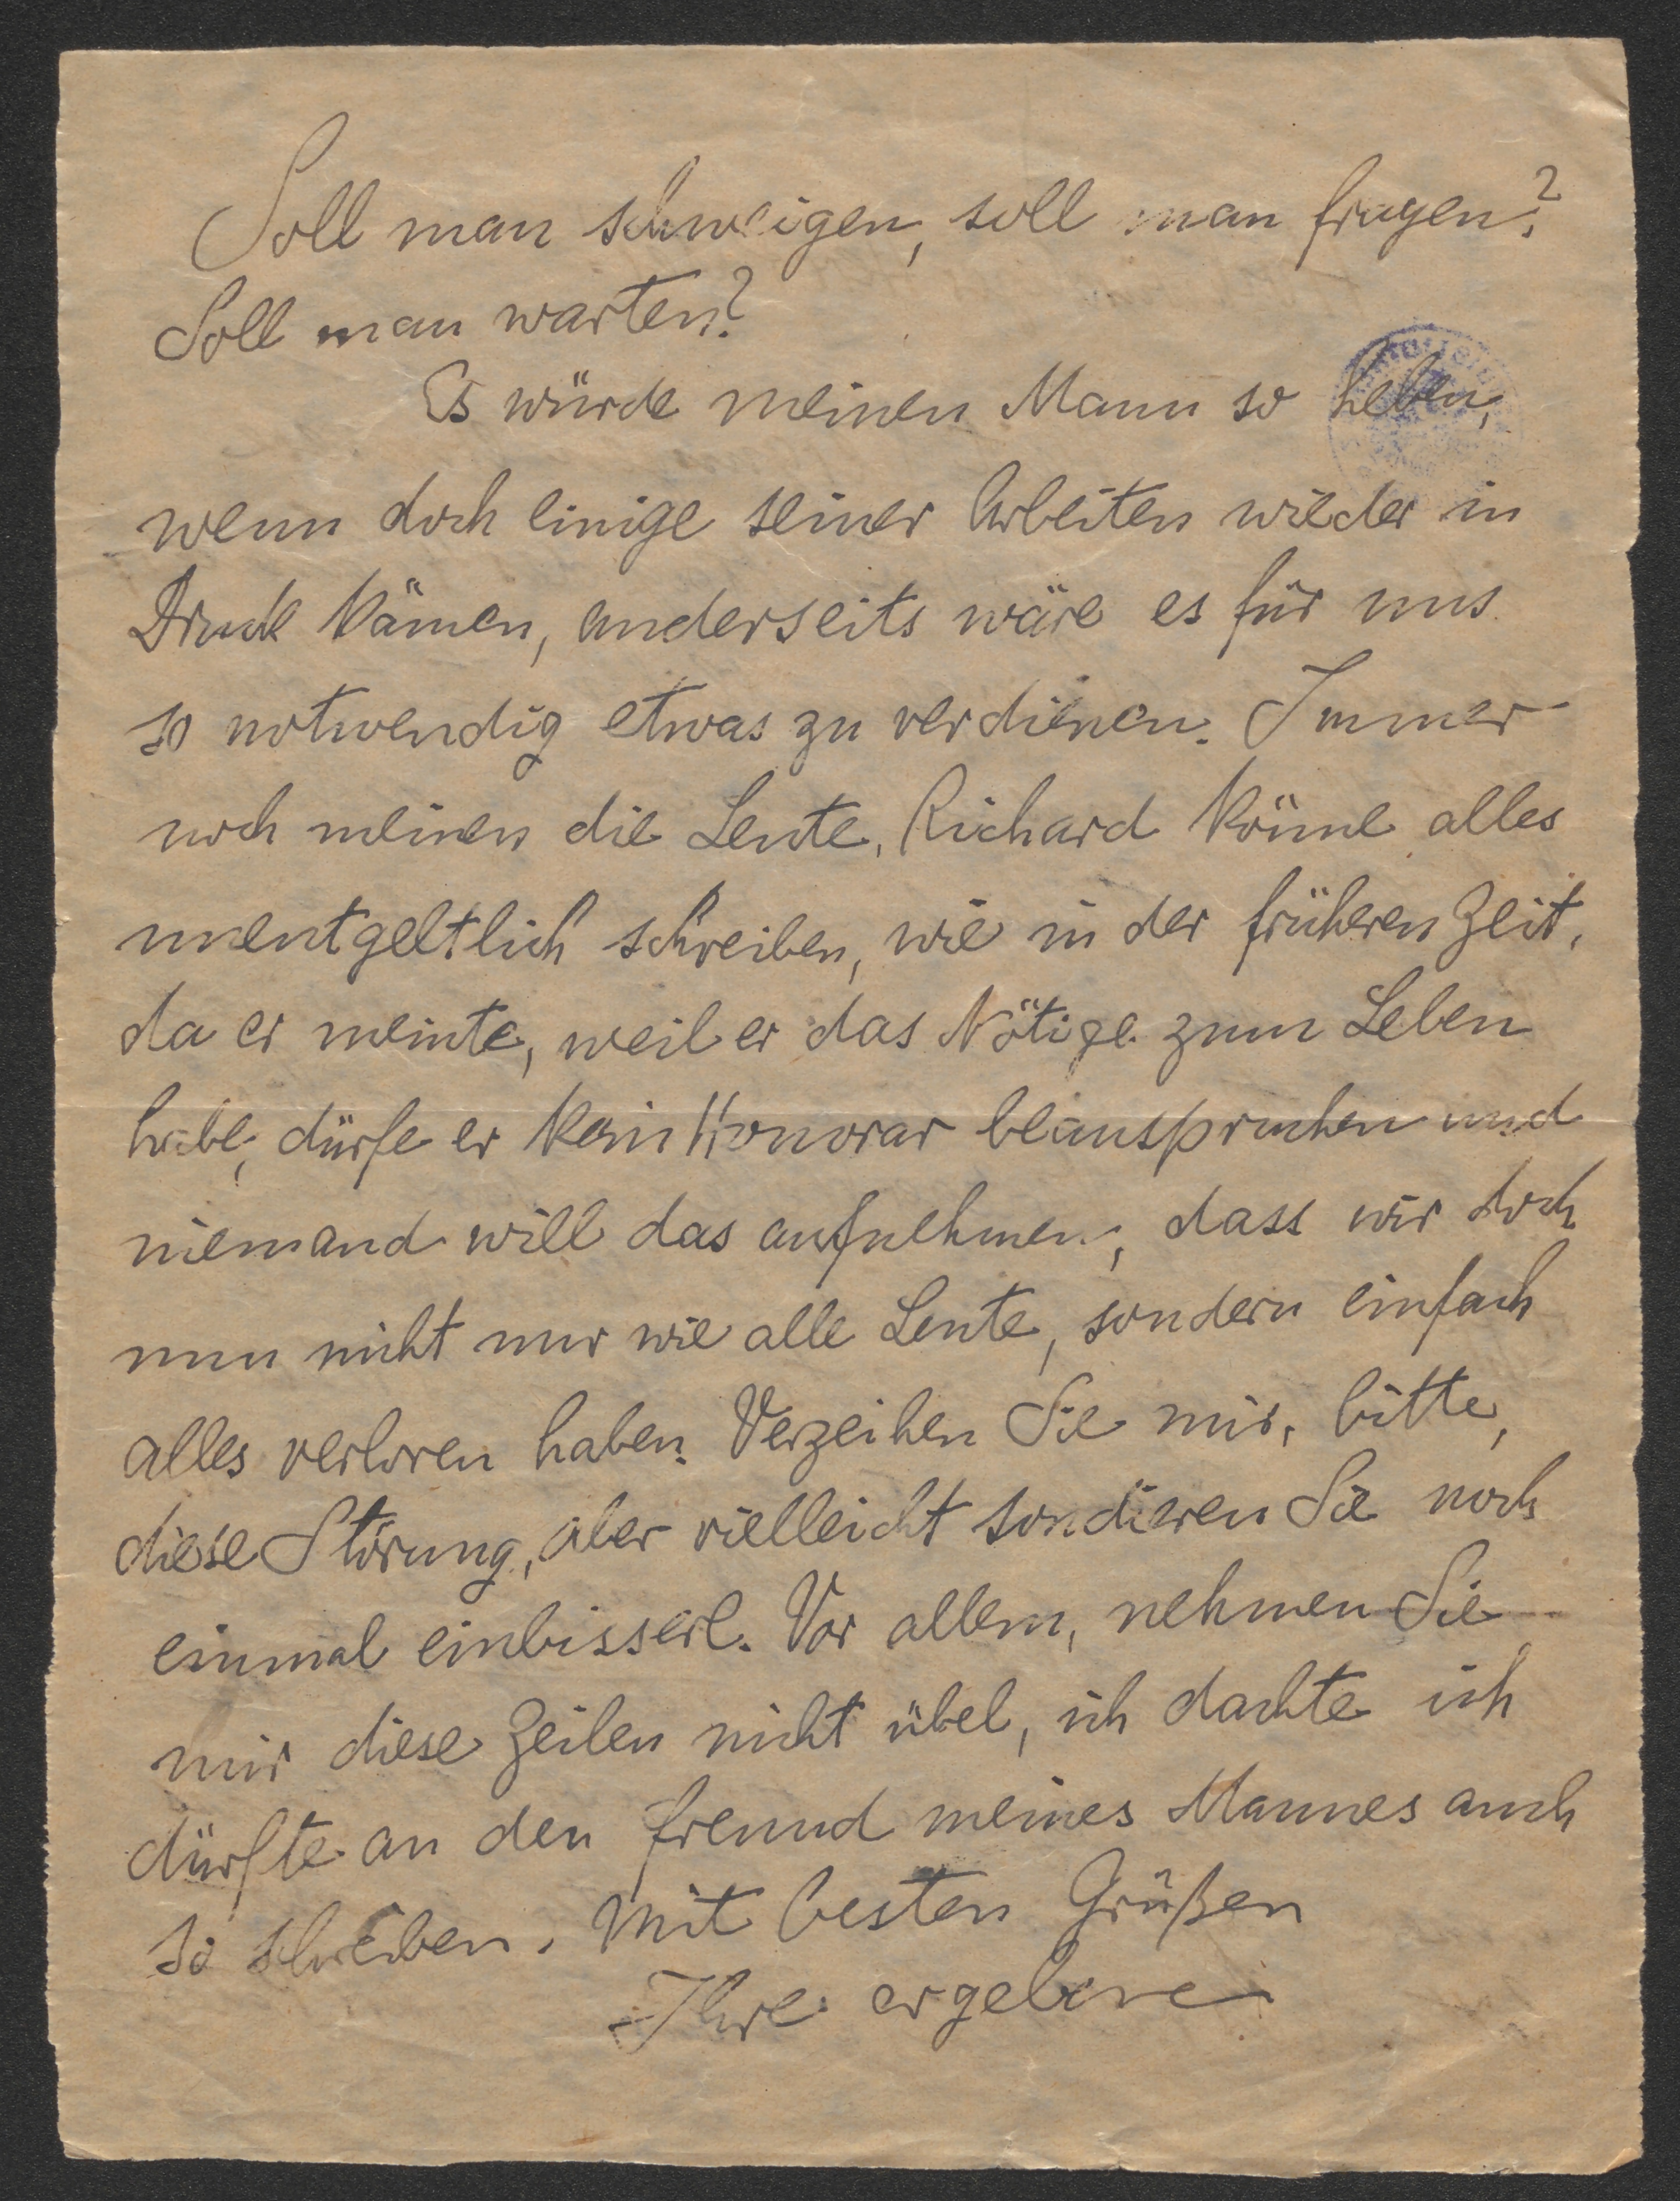 Soll man schweigen, soll man fragen?
Soll man warten?
Es würde meinen Mann so heben,
wenn doch einige seiner Arbeiten wieder in
Druck kämen, anderseits wäre es für uns
so notwendig etwas zu verdienen. Immer
noch meinen die Leute, Richard könne alles
unentgeltlich schreiben, wie in der früheren Zeit,
da er meinte, weil er das Nötige zum Leben
habe, dürfe er kein Honorar beanspruchen und
niemand will das aufnehmen, dass wir doch
nun nicht nur wie alle Leute, sondern einfach
alles verloren haben. Verzeihen Sie mir, bitte,
diese Störung, aber vielleicht sondieren Sie noch
einmal einbisserl. Vor allem, nehmen Sie
mir diese Zeilen nicht übel, ich dachte ich
dürfte an den Freund meines Mannes auch
so schreiben. Mit besten Grüßen
Ihre ergebene